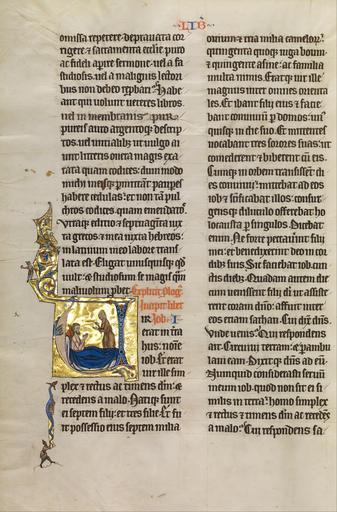 LIB
omissa repetere· deprauata cor
rigere· & sacramenta ecclie puro
ac fideli aperire sermone· uel a fa
stidiosis· uel a malignis lectori
bus non debeo rephari· Habe
ant qui uolunt ueteres libros·
uel in membranis pur
pureis auro argentoq; descrip
tos· uel initialib; ut uulgo ai
unt litteris onera magis exa
rata quam codices· dum modo
michi meisq; pmittāt pauperes
habere cedulas· & non tā pul
chros codices quam emendatos·
Utraq; editio & septuaginta iux
ta grecos· & mea iuxta hebreos·
in latinum meo labore trans
lata est· Eligat unusquisq; qd
uult· & studiosum se magis qm
maliuolum pbet· Explicit plog·
Incipit liber
Iob· I
IR
erat in tra
hus· noīe
iob· & erat
uir ille sim
plex & rectus ac timens dm· &
recedens a malo· Natiq; sunt
ei septem filij· et tres filie· & fu
it possessio eius septem milia
ouium· & tria milia camelor·
quingenta quoq; iuga boum·
& quingente asine· ac familia
multa nimis· Eratq; uir ille
magnus inter omnes orienta
les· Et ibant filij eius & facie
bant conuiuiū p domos· un
usquisq; in die suo· Et mittentes
uocabant tres sorores suas· ut
comederent & biberent cū eis·
Cumq; in orbem transissent di
es conuiuij· mittebat ad eos
iob & sctificabat illos· consur
gensq; diluculo offerebat ho
locausta p singulos· Dicebat
enim· Ne forte peccauerint filij
mei· et benedixerint deo in cor
dib; suis· Sic faciebat iob cun
ctis dieb; Quadam autem die
cum uenissent filij di ut assiste
rent coram dno· affuit inter
eos etiam sathan· Cui dix dns·
Unde uenis· Qui respondens
ait· Circuiui terram· & pambu
laui eam· Dixitq; dns ad eū·
Numquid considerasti seruū
meum iob· quod non sit ei si
milis in terra· homo simplex
& rectus & timens dm ac recedes
a malo· Cui respondens sa·